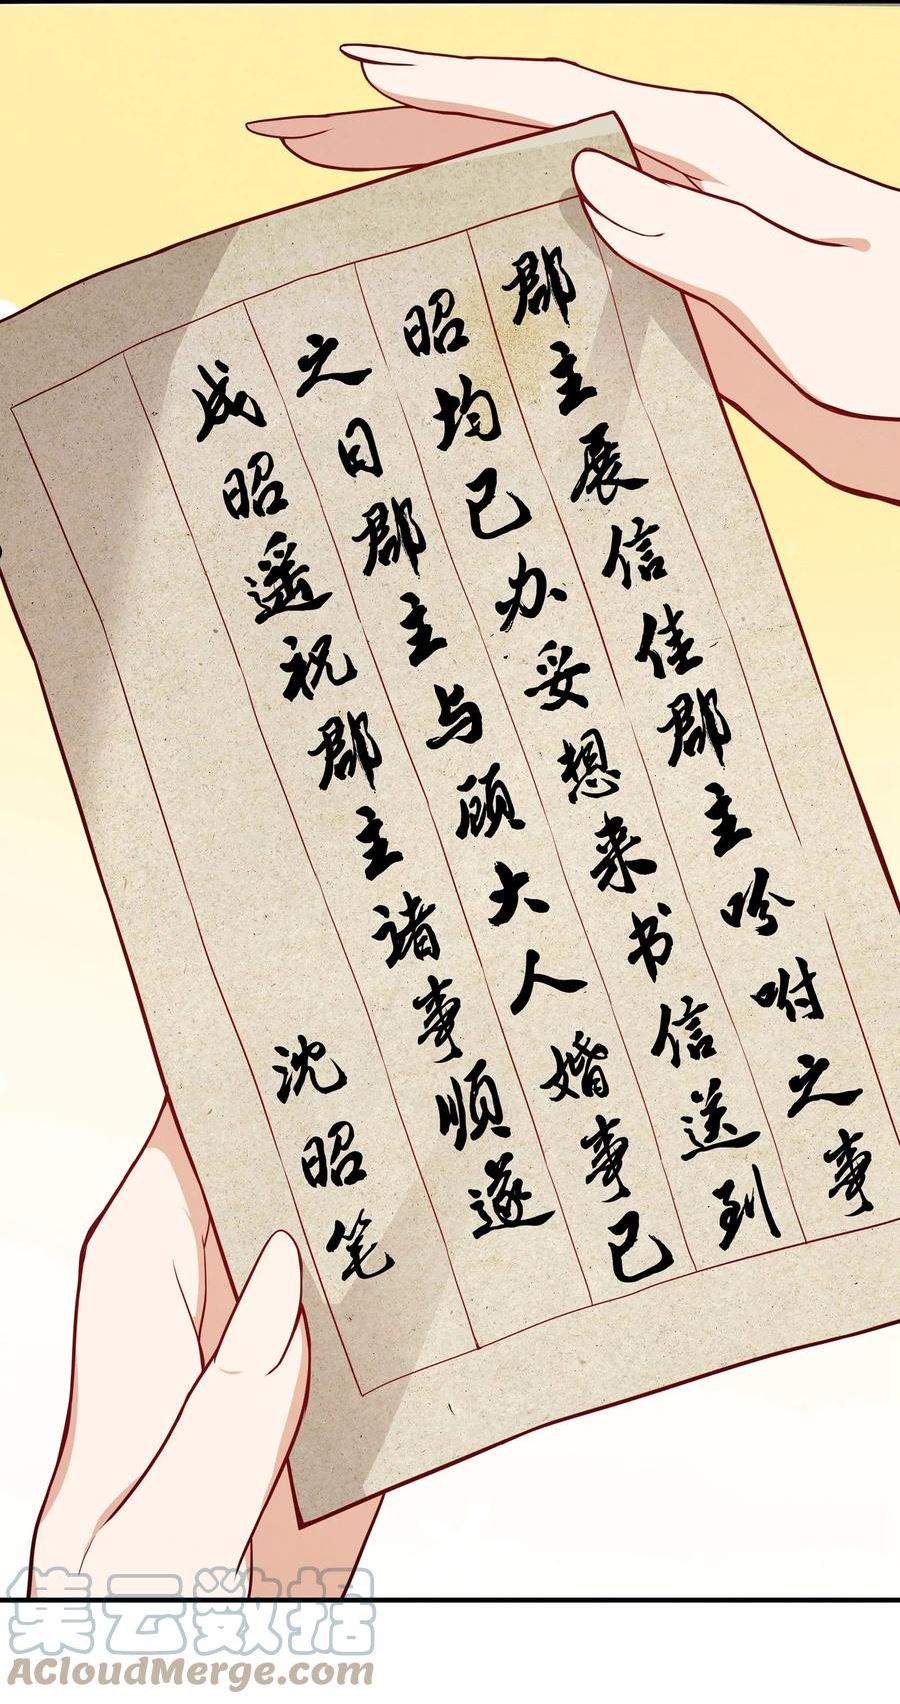 郡主展信佳郡主吩咐之事
昭均已办妥想来书信送到
之日郡主与顾大人婚事已
成昭遥祝郡主诸事顺遂
沈昭笔
集云数据
ACloudMerge.com